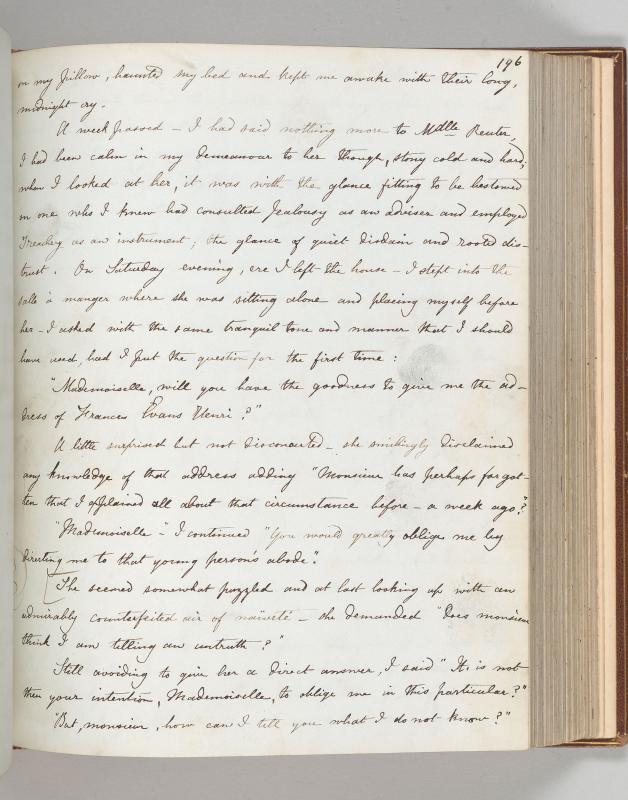 196
on my pillow, haunted my bed and kept me awake with their long,
midnight cry.
A week passed – I had said nothing more to Mdlle Reuter,
I had been calm in my demeanour to her though, stony cold and hard;
when I looked at her, it was with the glance fitting to be bestowed
on one who I knew had consulted Jealousy as an adviser and employed
Treachery as an instrument; the glance of quiet disdain and rooted dis-
trust. On Saturday evening, ere I left the house – I stept into the
salle à manger where she was sitting alone and placing myself before
her – I asked with the same tranquil tone and manner that I should
have used, had I put the question for the first time:
"Mademoiselle, will you have the goodness to give me the ad-
dress of Frances Evans Henri?"
A little surprised but not disconcerted – she smilingly disclaimed
any knowledge of that address adding "Monsieur has perhaps forgot-
ten that I explained all about that circumstance before – a week ago?"
"Mademoiselle –" I continued "You would greatly oblige me by
directing me to that young person's abode".
She seemed somewhat puzzled and at last looking up with an
admirably counterfeited air of naïveté – she demanded "Does monsieur
think I am telling an untruth?"
Still avoiding to give her a direct answer, I said "It is not
then your intention, Mademoiselle, to oblige me in this particular?"
"But, monsieur, how can I tell you what I do not know?"